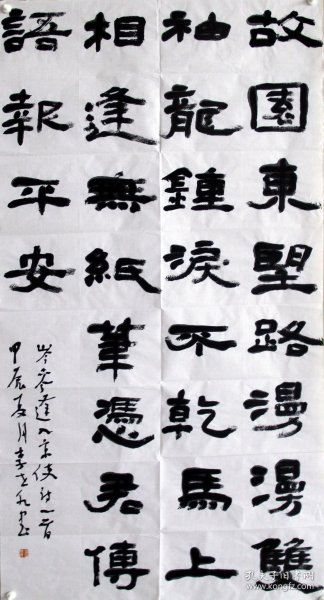 故園東望路漫漫雙
袖龍鍾淚不乾馬上
相逢無紙筆憑君傳
語報平安
岑參逢入京使詩一首
甲辰夏月李